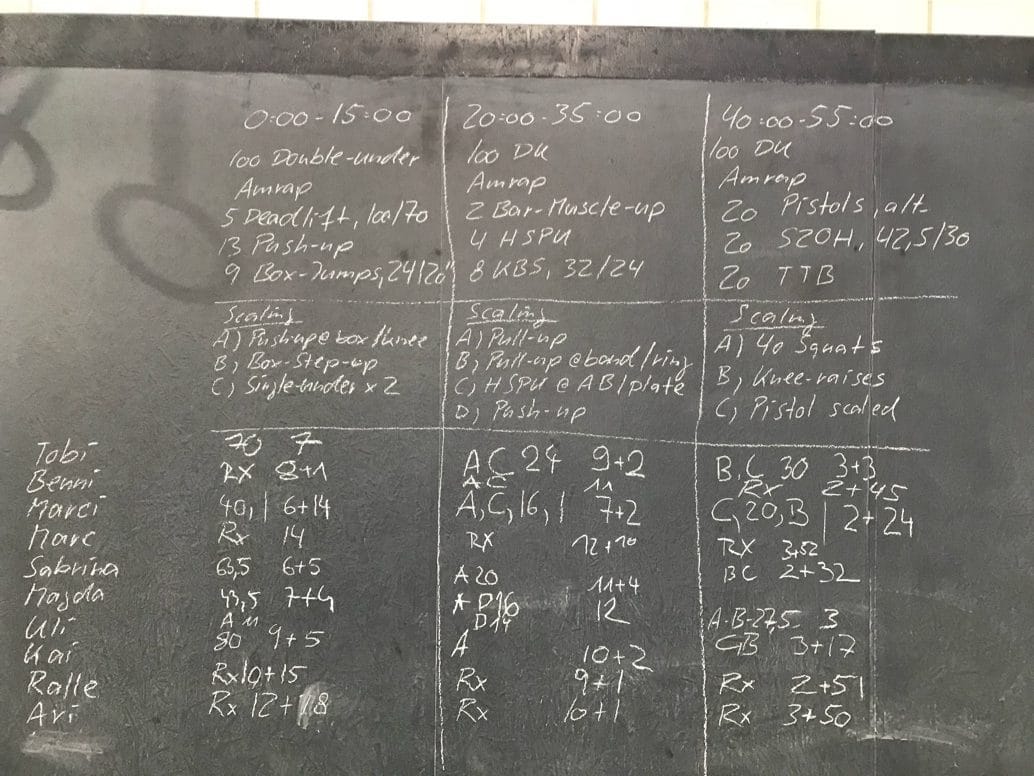 0:00-15:00
100 Double-under
Amrap
5 Deadlift, 100/70
13 Push-up
9 Box-Jumps, 24/20"
Scaling
A) Push-up @ box/knee
B) Box-Step-up
C) Single-under x 2
20:00-35:00
100 DU
Amrap
2 Bar-Muscle-up
4 HSPU
8 KBS, 32/24
Scaling
A) Pull-up
B) Pull-up @ band/ring
C) HSPU @ AB/plate
D) Push-up
40:00-55:00
100 DU
Amrap
20 Pistols, alt
20 S2OH, 42,5/30
20 TTB
Scaling
A) 40 Squats
B) Knee-raises
C) Pistol scaled
Tobi 70 7 AC 24 9+2 B,C 30 3+3
Benni RX 8+1 AC 11 Rx 2+45
Marci 40, 1 6+14 A,C,16,1 7+2 C,20,B 2+24
Marc Rx 14 RX 12+10 RX 3+52
Sabrina 63,5 6+5 A 20 11+4 BC 2+32
Magda 43,5 7+4 D16 12 A-B-27,5 3
Uli A 11 D14
Kai 80 9+5 A 10+2 3+17
Ralle Rx 10+15 Rx 9+1 Rx 2+51
Avi Rx 12+18 Rx 10+1 Rx 3+50